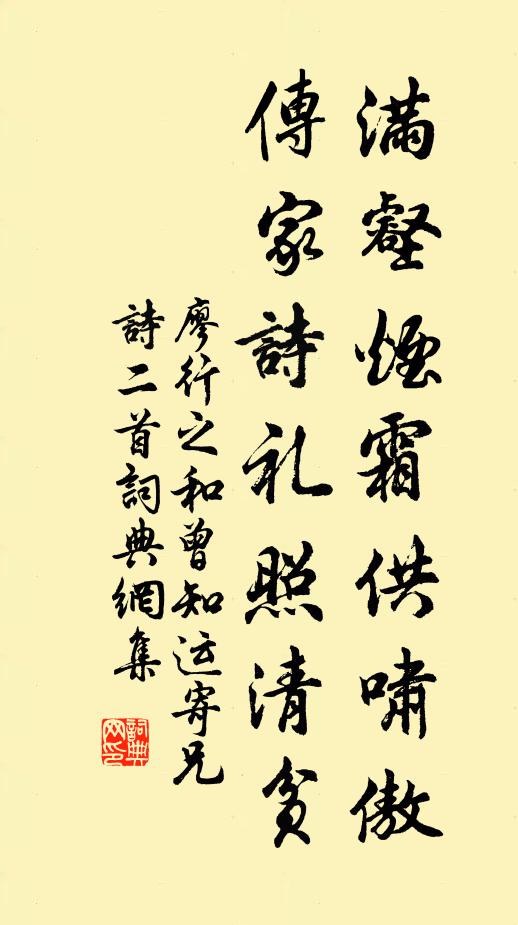 滿壑煙霜供嘯傲
傳家詩礼照清貧
廖行之和曾知运寄兄
詩二首詞典網集
詞典網印